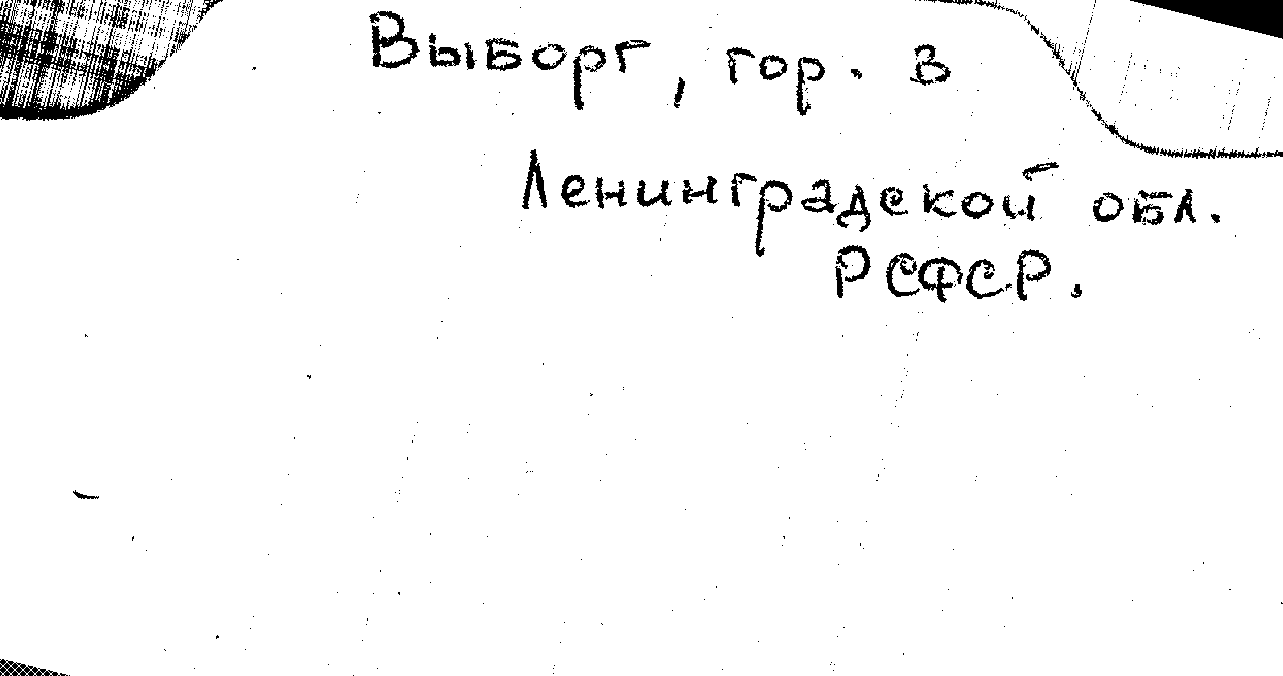 Выборг, гор. в
Ленинградской обл.
РСФСР.